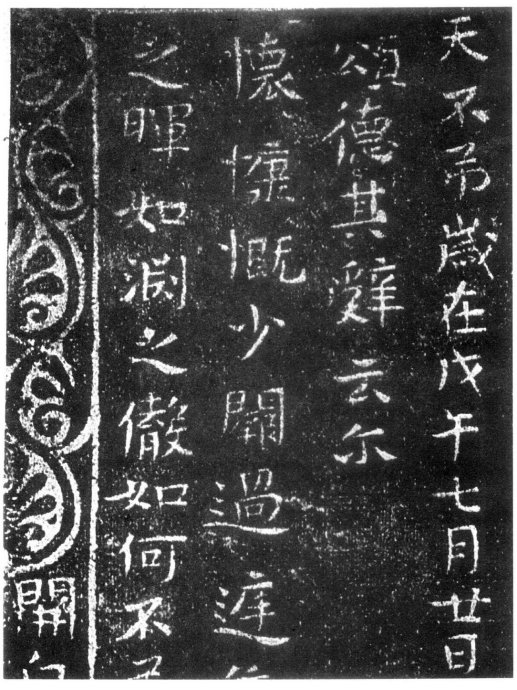 天不弔歲在戊午七月廿日
頌德其辭云尓
懷慷慨少開過
之暉如淵之如何不
開